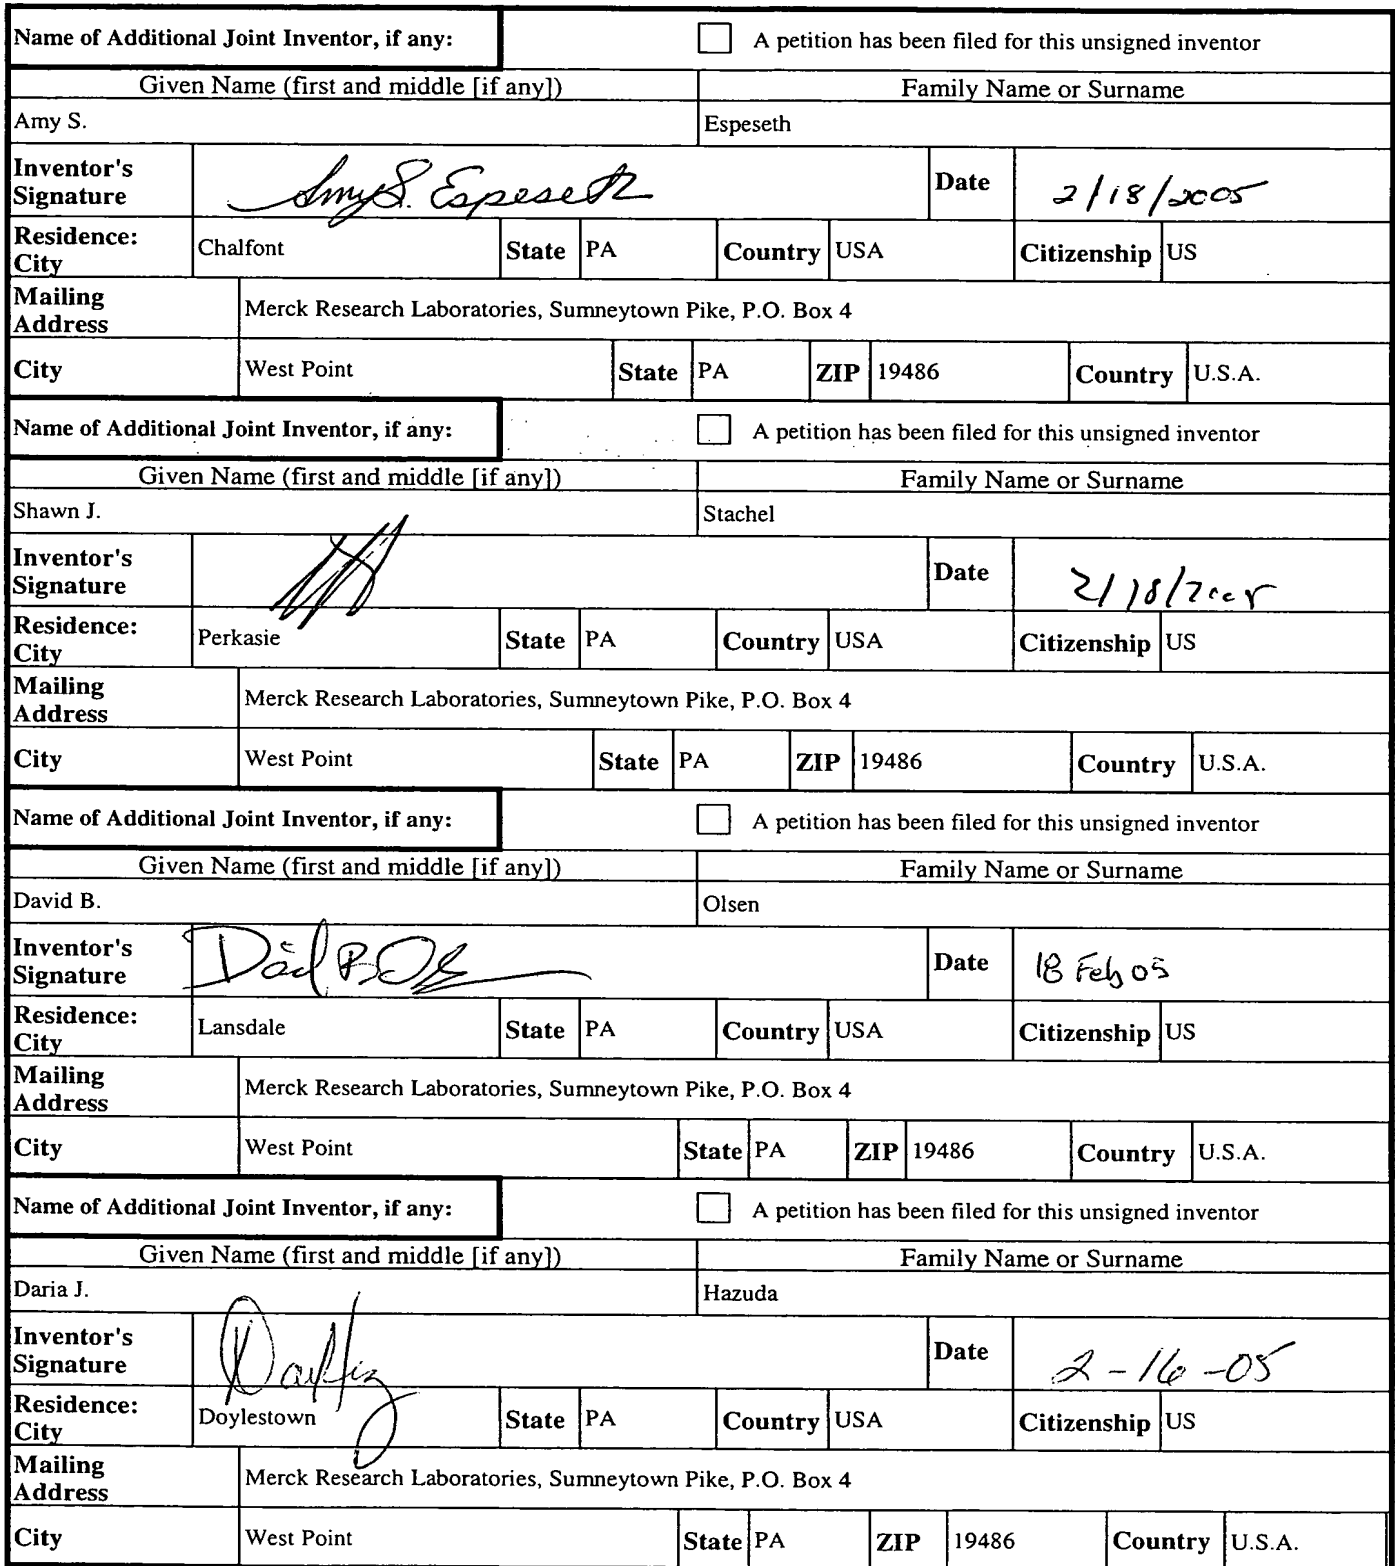 Name of Additional Joint Inventor, if any: A petition has been filed for this unsigned inventor
Given Name (first and middle [if any]) Family Name or Surname
Amy S. Espeseth
Inventor's Signature Amy S. Espeseth Date 2/18/2005
Residence: City Chalfont State PA Country USA Citizenship US
Mailing Address Merck Research Laboratories, Sumneytown Pike, P.O. Box 4
City West Point State PA ZIP 19486 Country U.S.A.
Name of Additional Joint Inventor, if any: A petition has been filed for this unsigned inventor
Given Name (first and middle [if any]) Family Name or Surname
Shawn J. Stachel
Inventor's Signature Date 2/18/2005
Residence: City Perkasie State PA Country USA Citizenship US
Mailing Address Merck Research Laboratories, Sumneytown Pike, P.O. Box 4
City West Point State PA ZIP 19486 Country U.S.A.
Name of Additional Joint Inventor, if any: A petition has been filed for this unsigned inventor
Given Name (first and middle [if any]) Family Name or Surname
David B. Olsen
Inventor's Signature Date 18 Feb 05
Residence: City Lansdale State PA Country USA Citizenship US
Mailing Address Merck Research Laboratories, Sumneytown Pike, P.O. Box 4
City West Point State PA ZIP 19486 Country U.S.A.
Name of Additional Joint Inventor, if any: A petition has been filed for this unsigned inventor
Given Name (first and middle [if any]) Family Name or Surname
Daria J. Hazuda
Inventor's Signature Date 2-16-05
Residence: City Doylestown State PA Country USA Citizenship US
Mailing Address Merck Research Laboratories, Sumneytown Pike, P.O. Box 4
City West Point State PA ZIP 19486 Country U.S.A.